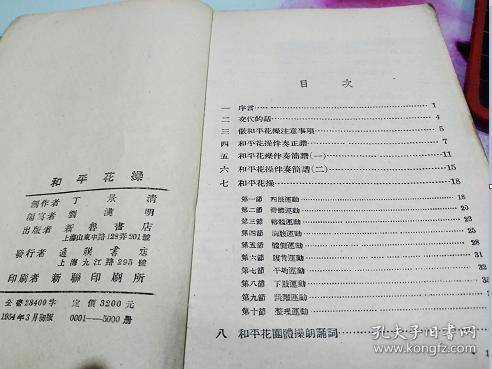 和平花操
創作者 丁永清
編寫者 劉漢明
出版者 新魯書店
上海山東中路128弄201號
發行者 通聯書店
上海九江路295號
印刷者 新聯印刷所
全書28400字 定價3200元
1954年3月初版 0001—5000冊
目次
一 序言 1
二 交代的話 4
三 做和平花操注意事項 5
四 和平花操伴奏正譜 7
五 和平花操伴奏簡譜(一) 11
六 和平花操伴奏簡譜(二) 15
七 和平花操 18
第一節 四肢運動 18
第二節 20
第三節 轉肢運動 23
第四節 胸肢運動 25
第五節 體側運動 28
第六節 腹背運動 30
第七節 平均運動
第八節 下肢運動
第九節 跳躍運動
第十節 整理運動
八 和平花團體操朗誦詞
孔夫子旧书网